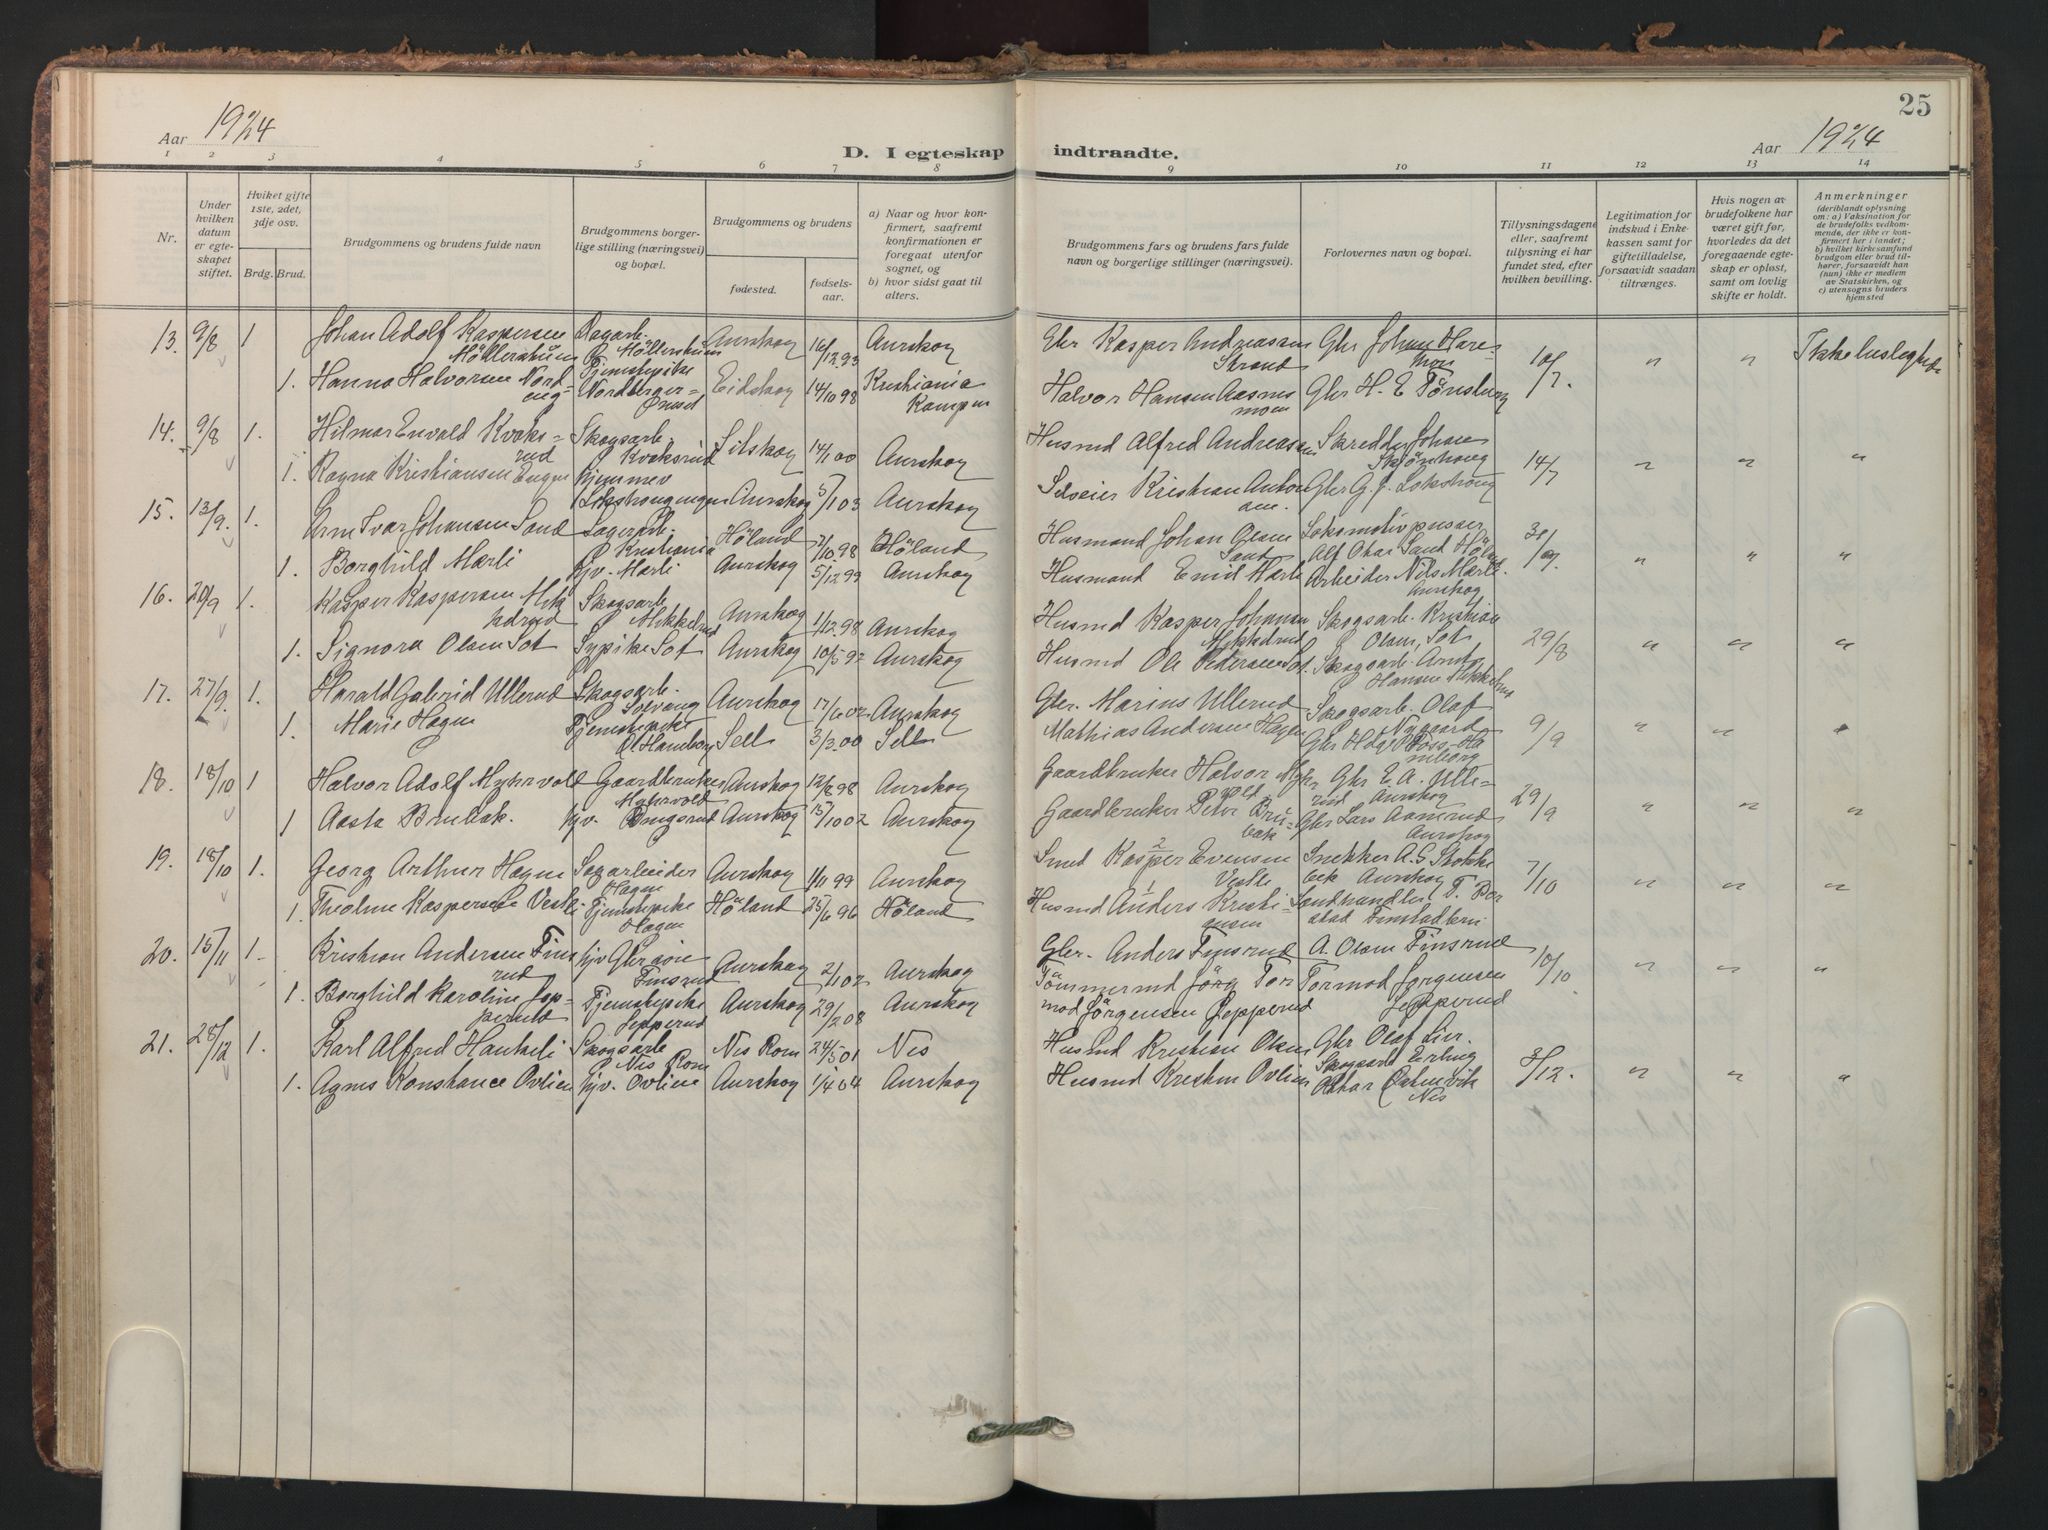 25
Aar 1924
D. I egteskap indtraadte.
Aar 1924
1 2 3 4 5 6 7 8 9 10 11 12 13 14
Nr.
Under hvilken datum er egteskapet stiftet.
Hviket gifte 1ste, 2det, 3dje osv.
Brdg. Brud.
Brudgommens og brudens fulde navn
Brudgommens borgerlige stilling (næringsvei) og bopæl.
Brudgommens og brudens
fødested.
fødselsaar.
a) Naar og hvor konfirmert, saafremt konfirmationen er foregaat utenfor sognet, og
b) hvor sidst gaat til alters.
Brudgommens fars og brudens fars fulde navn og borgerlige stillinger (næringsvei).
Forlovernes navn og bopæl.
Tillysningsdagene eller, saafremt tillysning ei har fundet sted, efter hvilken bevilling.
Legitimation for indskud i Enkekassen samt for giftetilladelse, forsaavidt saadan tiltrænges.
Hvis nogen av brudefolkene har været gift før, hvorledes da det foregaaende egteskap er opløst, samt om lovlig skifte er holdt.
Anmerkninger
(deriblandt oplysning om: a) Vaksination for de brudefolks vedkommende, der ikke er konfirmert her i landet; b) hvilket kirkesamfund brudgom eller brud tilhører, forsaavidt han (hun) ikke er medlem av Statskirken, og c) utensogns bruders hjemsted
13. 9/8 1 Johan Adolf Kaspersen Aurskog 16/12 93 Aurskog Gbr Kasper Andreassen Strand Gbr Johan 10/7. " " Ikke
1. Hanna Halvorsen Nordeng Tjenstepike Eidskog 14/10 98 Kristiania Kampen Halvor Hansen Gbr H. E. Tönsberg
14. 9/8 1. Hilmar Envald Kvaksrud Skogsarb. Kvaksrud 14/1 00 Aurskog Husmd Alfred Andreassen Skredder Johan 14/7 " " "
1. Ragna Kristiansen Engen hjemmev Aurskog 5/1 03 Aurskog Selveier Kristian Gbr G. J.
15. 13/9. 1. Ivar Johansen Sand Kristiania Höland 7/10 98 Höland Husmand Johan Olsen Sand Lokomotivpusser Alf Sand " " "
1. Borghild Mærli hjv. Mærli Aurskog 5/12 99 Aurskog Husmand Emil Mærli Arbeider Nils Mærli Aurskog
16. 20/9 1. Kasper Kaspersen Mikkelrud Skogsarb Mikkelrud Aurskog 1/12. 98 Aurskog Husmd Kasper Johansen Mikkelrud Skogsarb. Kristian Olsen, Sot 29/8 " " "
1. Signora Olsen Sot Sypike Sot Aurskog 10/5 92 Aurskog Husmd Ole Pedersen Sot Skogsarb. Hansen Mikkelrud
17. 27/9. 1. Harald Gabriel Ullerud Skogsarb. Solvang Aurskog 17/6 02 Aurskog Gbr. Marius Ullerud Skogsarb. Olaf Nygaard 9/9 " "
1. Marie Hagen Tjenstepike Sell 3/3 00 Sell Mathias Andersen Hagen Gbr
18. 18/10 1 Halvor Adolf Myhrvold Gaardbruker Myhrvold Aurskog 12/8 98 Aurskog Gaardbruker Halvor Myhrvold Gbr E. A. Ullerud Aurskog 29/9 " " "
1 Aasta Brubak. hjv. Aurskog 15/10 02 Aurskog Gaardbruker Peter Brubak Gbr Lars Aamrud Aurskog
19. 18/10 1. Georg Arthur Hagen Sagarbeider Hagen Aurskog 1/11 99 Aurskog 2 Smed Kasper Evensen Vestli Snekker A. G. Stokkebek Aurskog 7/10 " " "
1. Kaspersen Vestli Tjenstepike Hagen Höland 25/6 96 Höland 1 Husmd Anders Kristiansen Landhandler T. Borstad
20. 15/11 1. Kristian Andersen Finsrud Finsrud Aurskog 2/1 02 Aurskog Gbr. Anders Finsrud A. Olsen Finsrud 10/10 " " "
1. Borghild Karoline Jepperud Tjenstepike Jepperud Aurskog 29/2 08 Aurskog Tömmermd Jörg Tormod Jörgensen Jepperud Tormod Jorgensen Jepperud
21. 28/12 1. Karl Alfred Skogsarb Nes Rom Nes Rom 24/5 01 Nes Husmd Kristian Olsen Gbr Olaf Lier. 3/12. " " "
1. Agnes Konstance Ovlien hjv. Ovlien Aurskog 1/4 04 Aurskog Husmd Ovlien Skogsarb Erling Nes